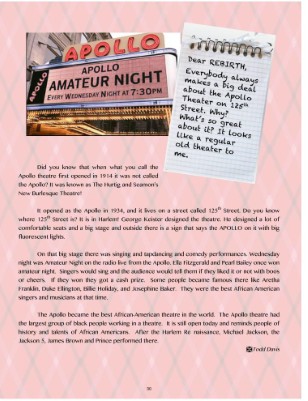 APOLLO
APOLLO
APOLLO
AMATEUR NIGHT
EVERY WEDNESDAY NIGHT AT 7:30PM
Dear REBIRTH,
Everybody always
makes a big deal
about the Apollo
Theater on 125th
Street. Why?
What's so great
about it? It looks
like a regular
old theater to
me.
Did you know that when what you call the
Apollo theatre first opened in 1914 it was not called
the Apollo? It was known as The Hurtig and Seamon's
New Burlesque Theatre!
It opened as the Apollo in 1934, and it lives on a street called 125th Street. Do you know
where 125th Street is? It is in Harlem! George Keister designed the theatre. He designed a lot of
comfortable seats and a big stage and outside there is a sign that says the APOLLO on it with big
fluorescent lights.
On that big stage there was singing and tapdancing and comedy performances. Wednesday
night was Amateur Night on the radio live from the Apollo. Ella Fitzgerald and Pearl Bailey once won
amateur night. Singers would sing and the audience would tell them if they liked it or not with boos
or cheers. If they won they got a cash prize. Some people became famous there like Aretha
Franklin, Duke Ellington, Billie Holiday, and Josephine Baker. They were the best African American
singers and musicians at that time.
The Apollo became the best African-American theatre in the world. The Apollo theatre had
the largest group of black people working in a theatre. It is still open today and reminds people of
history and talents of African Americans. After the Harlem Re naissance, Michael Jackson, the
Jackson 5, James Brown and Prince performed there.
Todd Davis